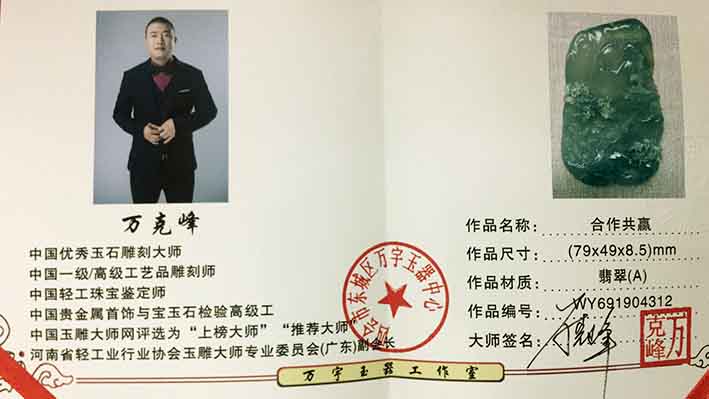 万克峰
中国优秀玉石雕刻大师
中国一级/高级工艺品雕刻师
中国轻工珠宝鉴定师
中国贵金属首饰与宝玉石检验高级工
中国玉雕大师网评选为“上榜大师”“推荐大师”
河南省轻工业行业协会玉雕大师专业委员会(广东)副会长
会市东城区万宇玉器中心
作品名称: 合作共赢
作品尺寸: (79x49x8.5)mm
作品材质: 翡翠(A)
作品编号: WY691904312
大师签名:
万克峰
万宇玉器工作室